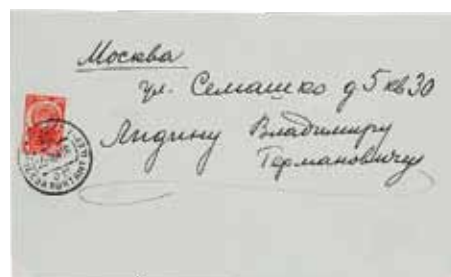 Москва
ул. Семашко д 5 кв 30
Лидину Владимиру
Германовичу